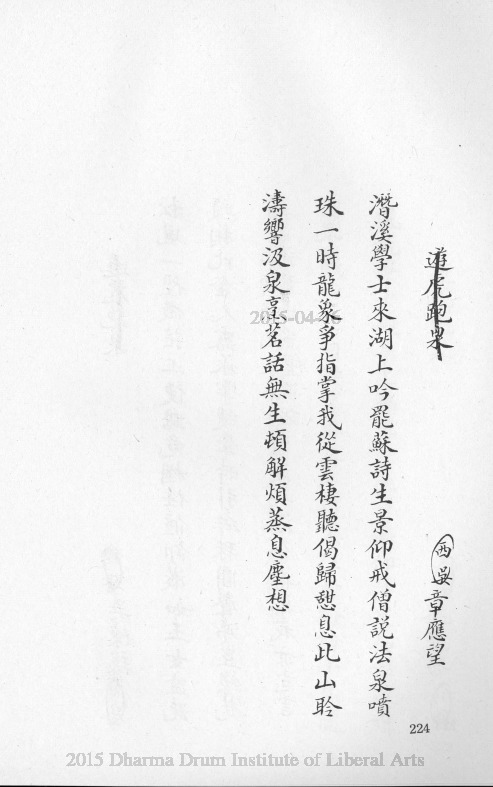 遊虎跑泉
西吳章應望
濳溪學士來湖上吟罷蘇詩生景仰戒僧説法泉噴
珠一時龍象爭指掌我從雲棲聽偈歸憇息此山聆
濤響汲泉烹茗話無生頓解煩蒸息塵想
224
2015 Dharma Drum Institute of Liberal Arts